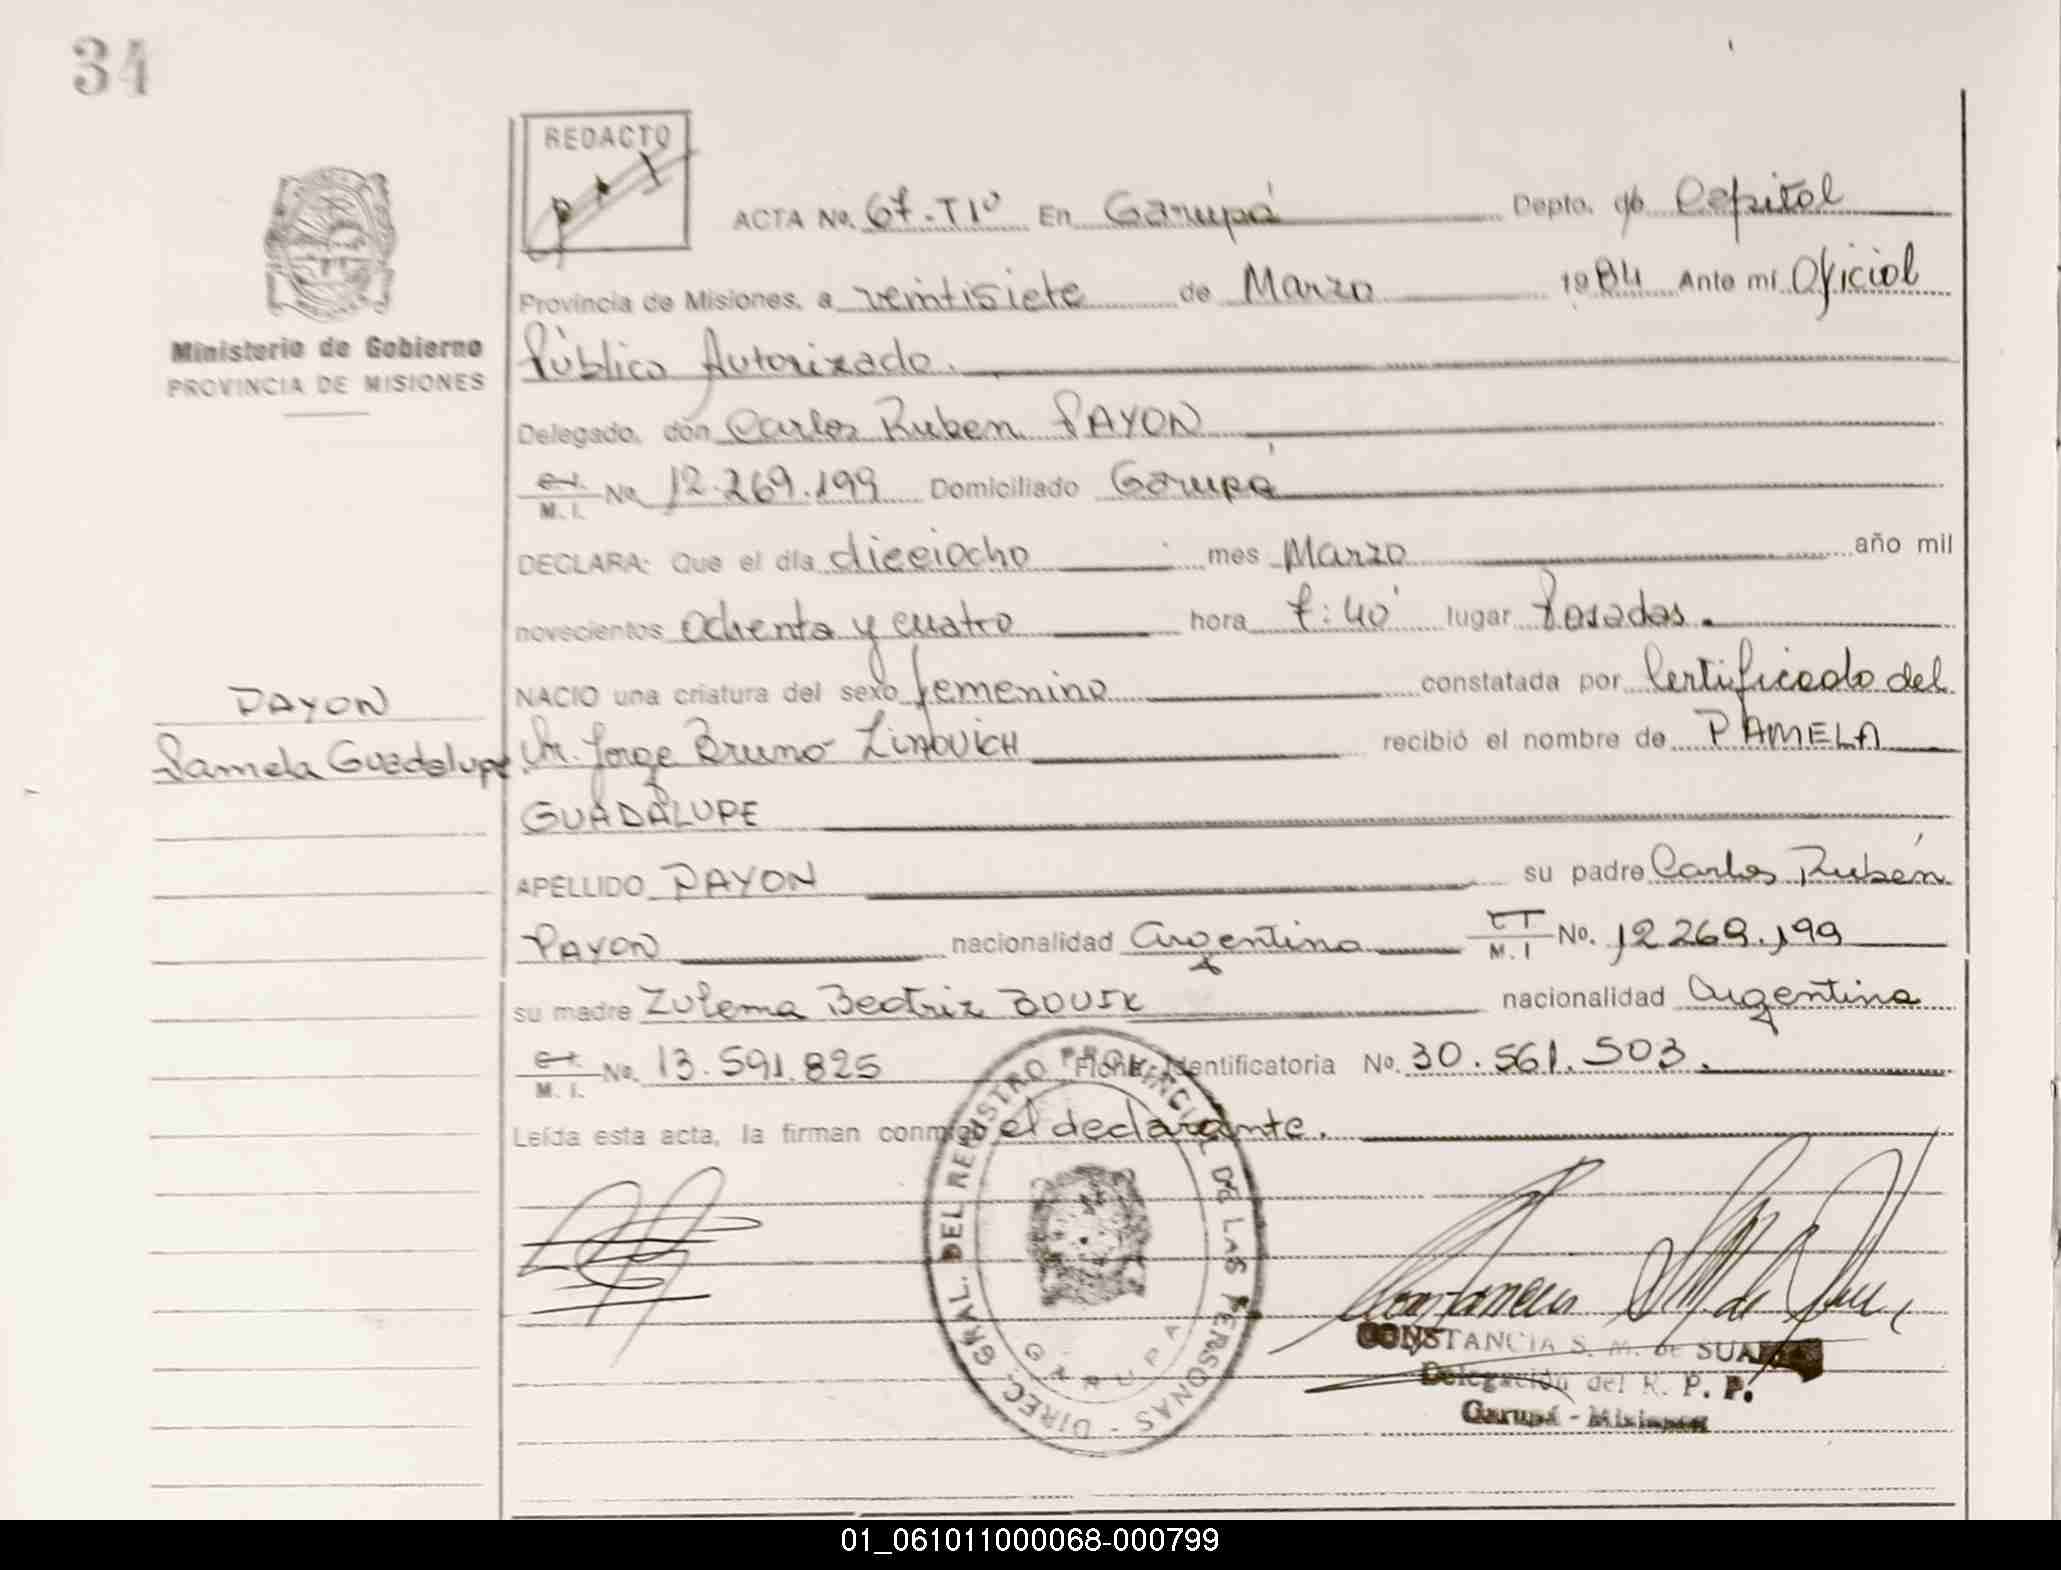 34
REDACTO
ACTA No. 67.Tlº En Garupá Depto. Capital
Ministerio de Gobierno
PROVINCIA DE MISIONES
Provincia de Misiones, a veintisiete de Marzo 1984 Ante mí Oficial
Público Autorizado.
Delegado, don Carlos Ruben PAYON
M. I. No. 12.269.199 Domiciliado Garupá
DECLARA: Que el día dieciocho mes Marzo año mil
novecientos ochenta y cuatro hora 7:40' lugar Posadas.
NACIO una criatura del sexo femenino constatada por Certificado del
PAYON
Pamela Guadalupe
Dr. Jorge Bruno recibió el nombre de PAMELA
GUADALUPE
APELLIDO PAYON su padre Carlos Rubén
PAYON nacionalidad Argentina M. I No. 12.269.199
su madre Zulema Beatriz nacionalidad Argentina
M. I. No. 13.591.825 Ficha Identificatoria No. 30.561.503.
Leída esta acta, la firman conmigo el declarante.
DIREC. GRAL. DEL REGISTRO PROVINCIAL DE LAS PERSONAS -
GARUPA
CONSTANCIA S. M. DE SUAREZ
Delegación del R. P. P.
Garupá - Misiones
01_061011000068-000799